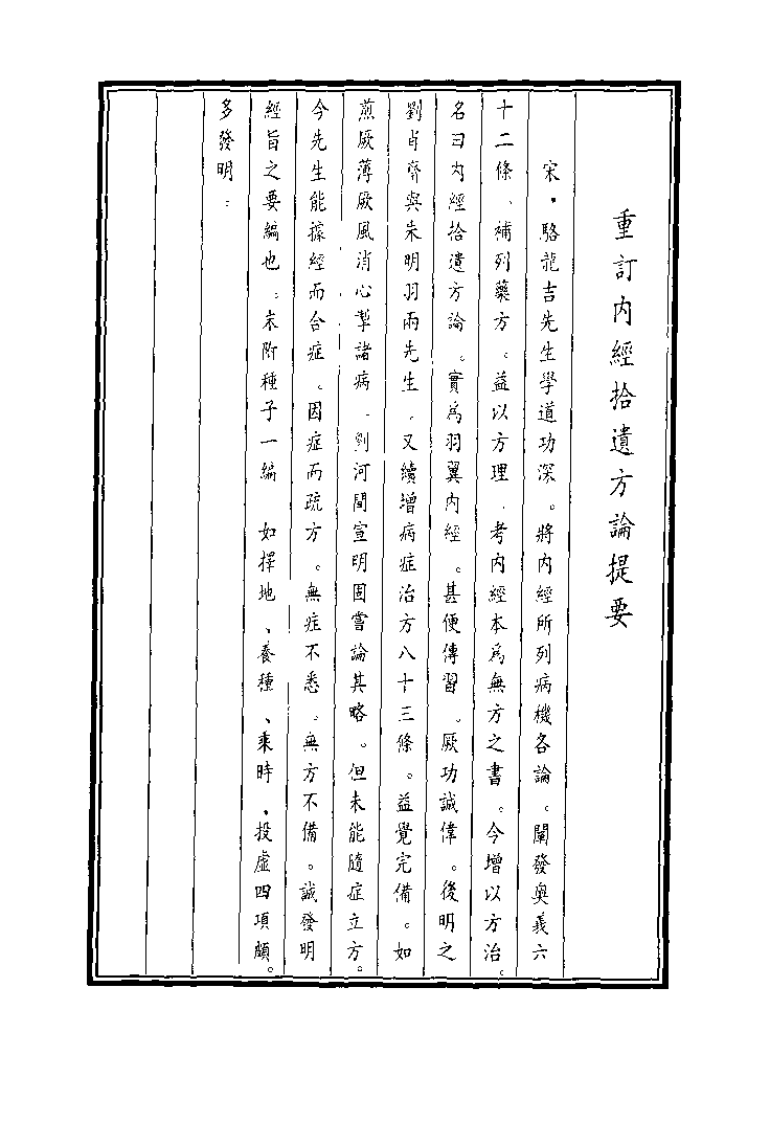 重訂內經拾遺方論提要
宋．駱龍吉先生學道功深。將內經所列病機各論。闡發奧義六
十二條、補列藥方。益以方理．考內經本爲無方之書。今增以方治。
名曰內經拾遺方論。實爲羽翼內經。甚便傳習。厥功誠偉。後明之
劉貞齋與朱明羽兩先生．又續增病症治方八十三條。益覺完備。如
煎厥薄厥風消心掣諸病．劉河間宣明固嘗論其略。但未能隨症立方。
今先生能據經而合症。因症而疏方。無症不悉。無方不備。誠發明
經旨之要編也。末附種子一編　如擇地、養種、乘時、投虛四項頗。
多發明。